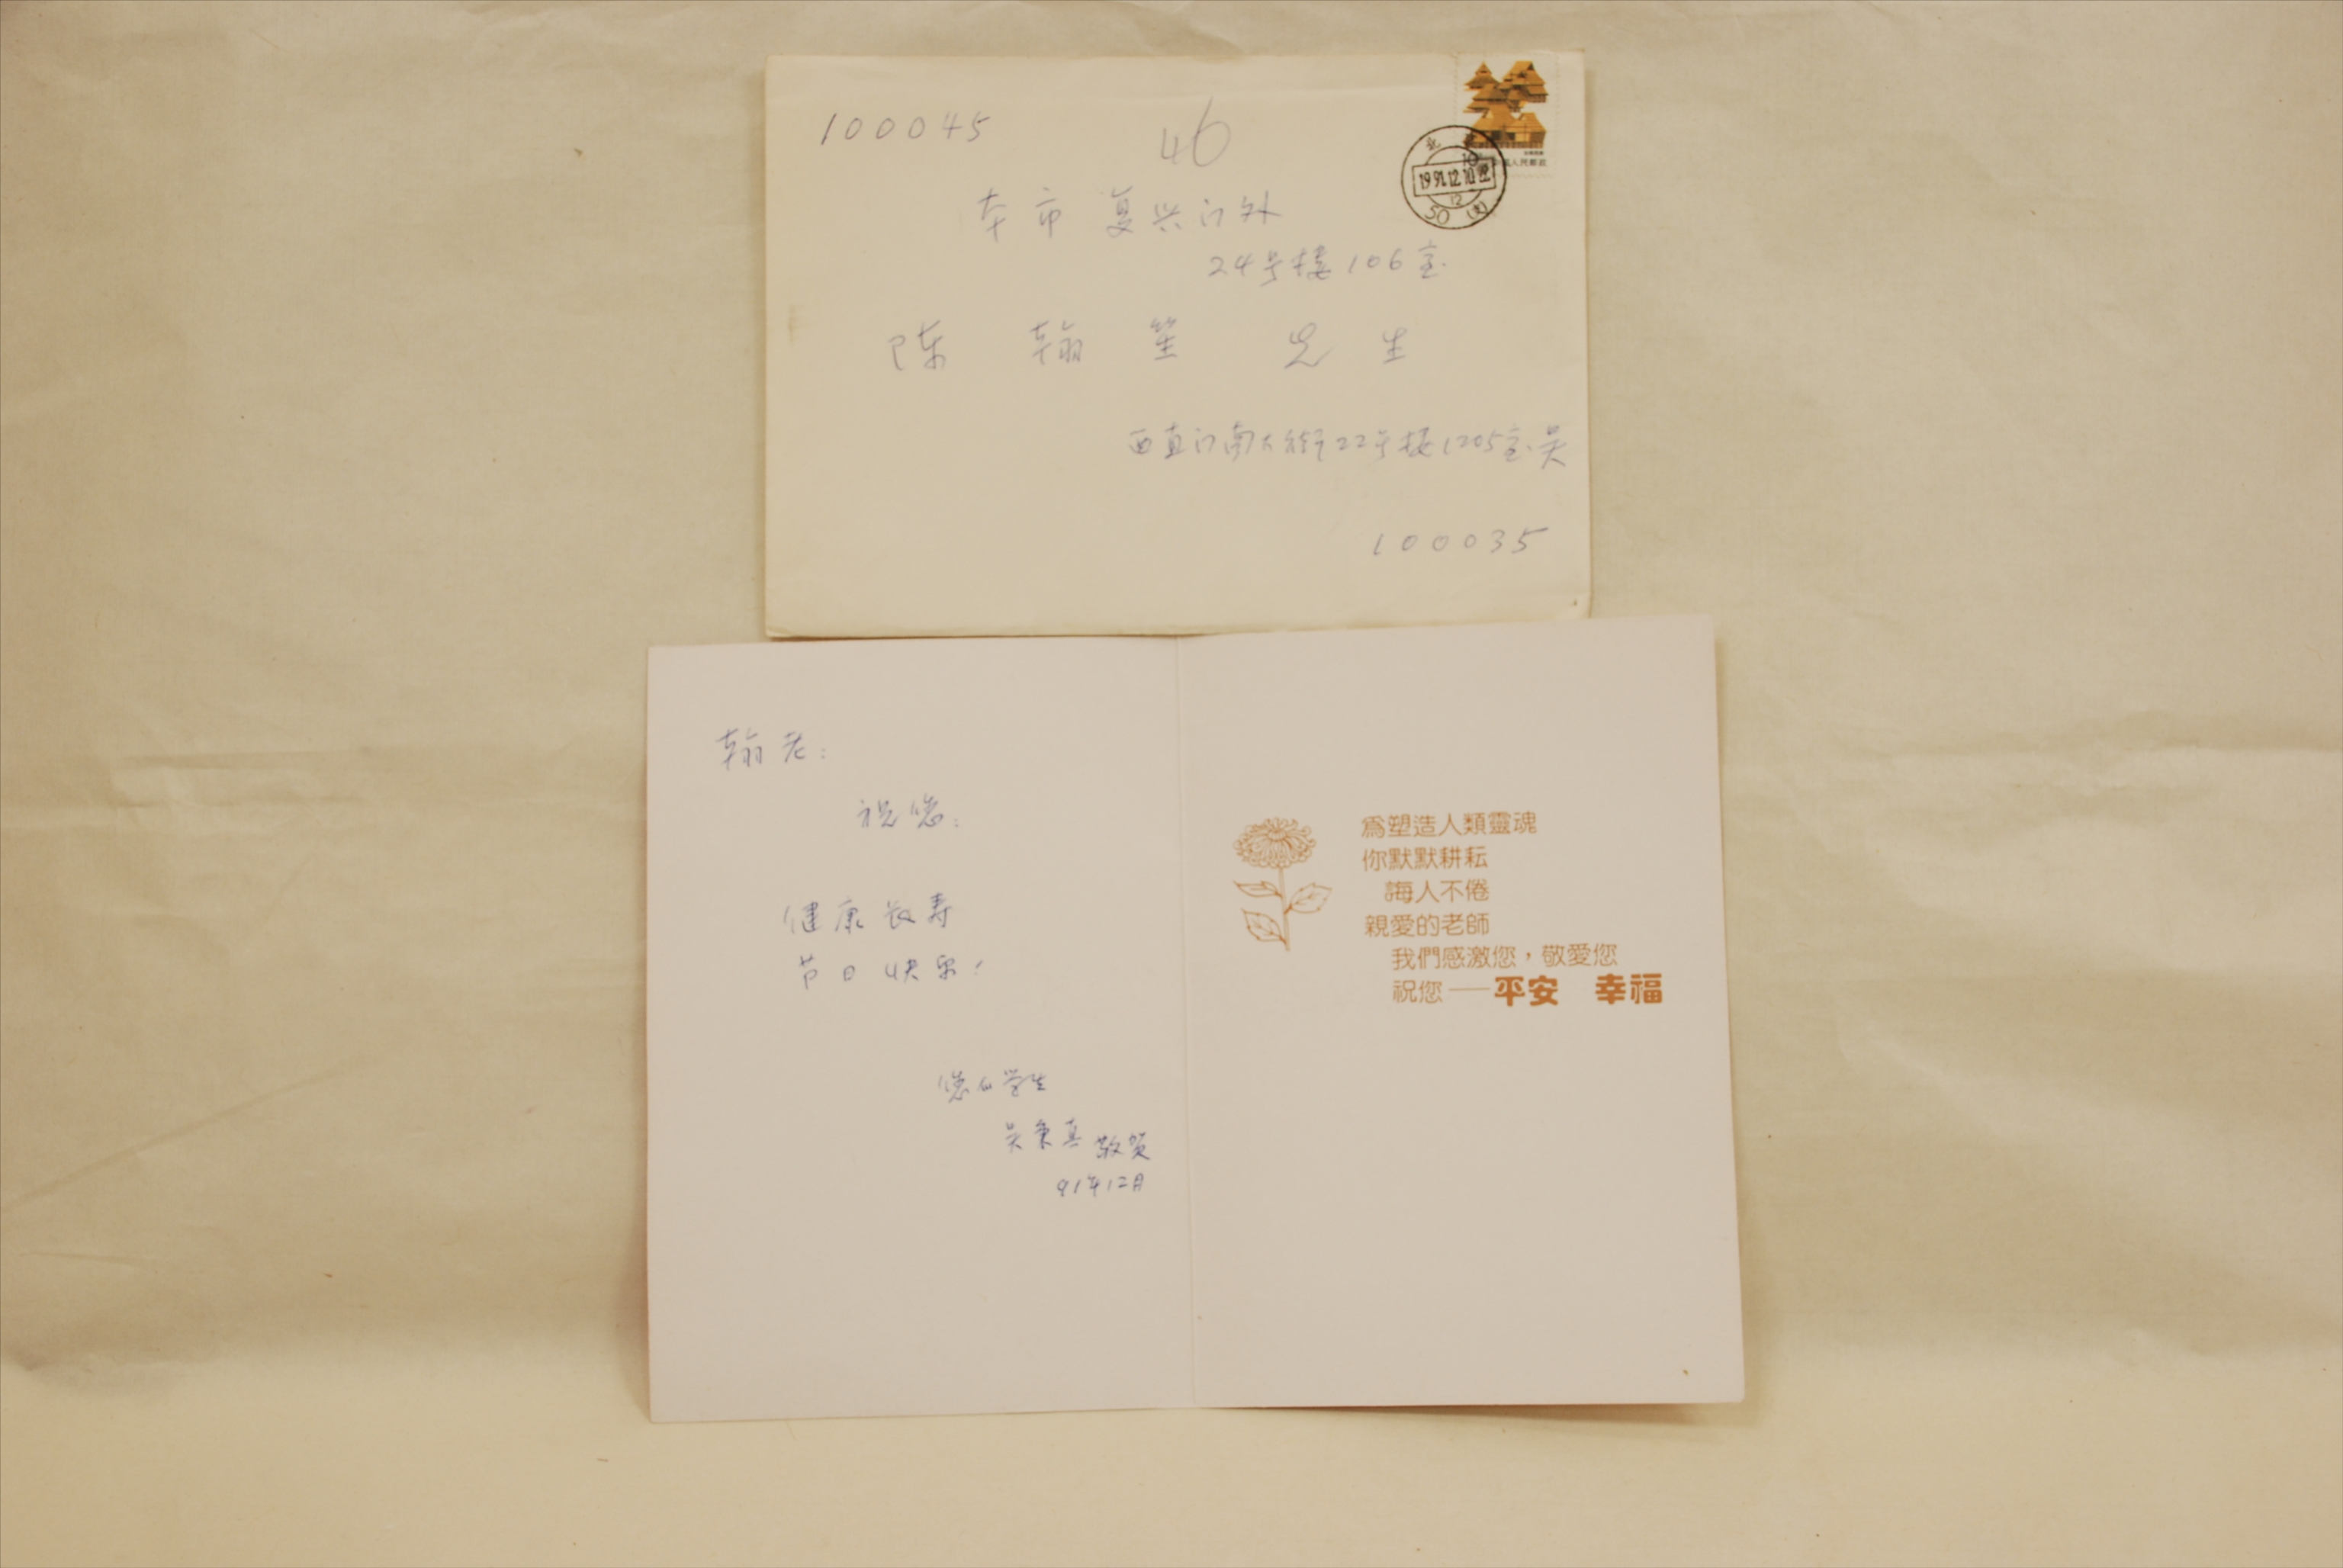 100045
46
本市 复兴门外
24号楼106室
陈 翰 笙 先 生
西直门南大街22号楼1205室吴
100035
北京
1991.12.10
12
50 (支)
中国人民邮政
翰老:
祝您:
健康长寿
节日快乐!
您的学生
吴秉真 敬贺
91年12月
為塑造人類靈魂
你默默耕耘
誨人不倦
親愛的老師
我們感激您,敬愛您
祝您——平安 幸福